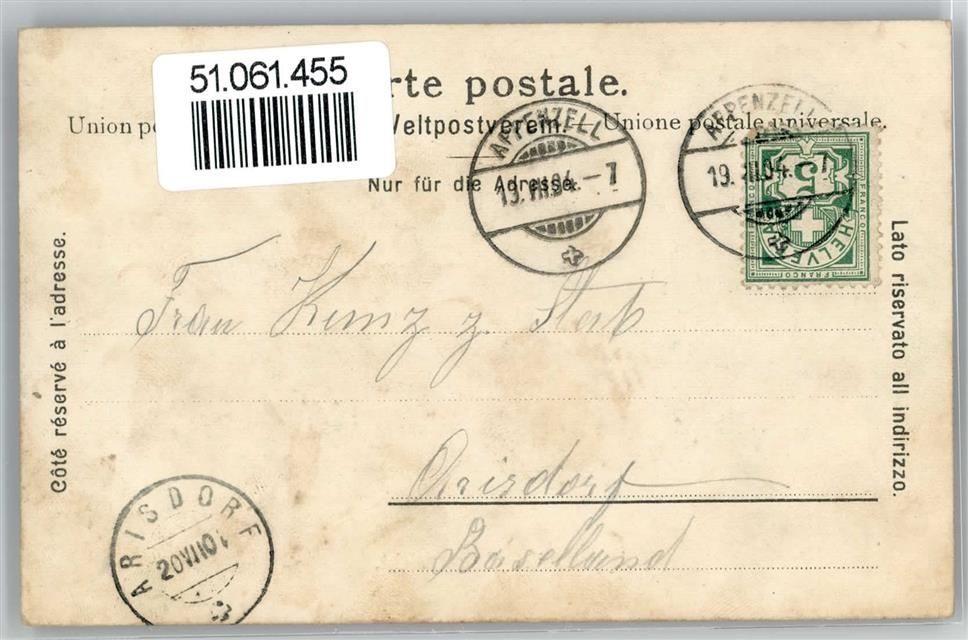 51.061.455
rte postale.
Union po Weltpostverein. — Unione postale universale.
Nur für die Adresse.
APPENZELL
19.VII.04.–7
APPENZELL
19.VII.04.–7
5
FRANCO
HELVETIA
FRANCO
Côté réservé à l'adresse.
Lato riservato all indirizzo.
Frau z.
Arisdorf
Baselland
ARISDORF
20 VII 04